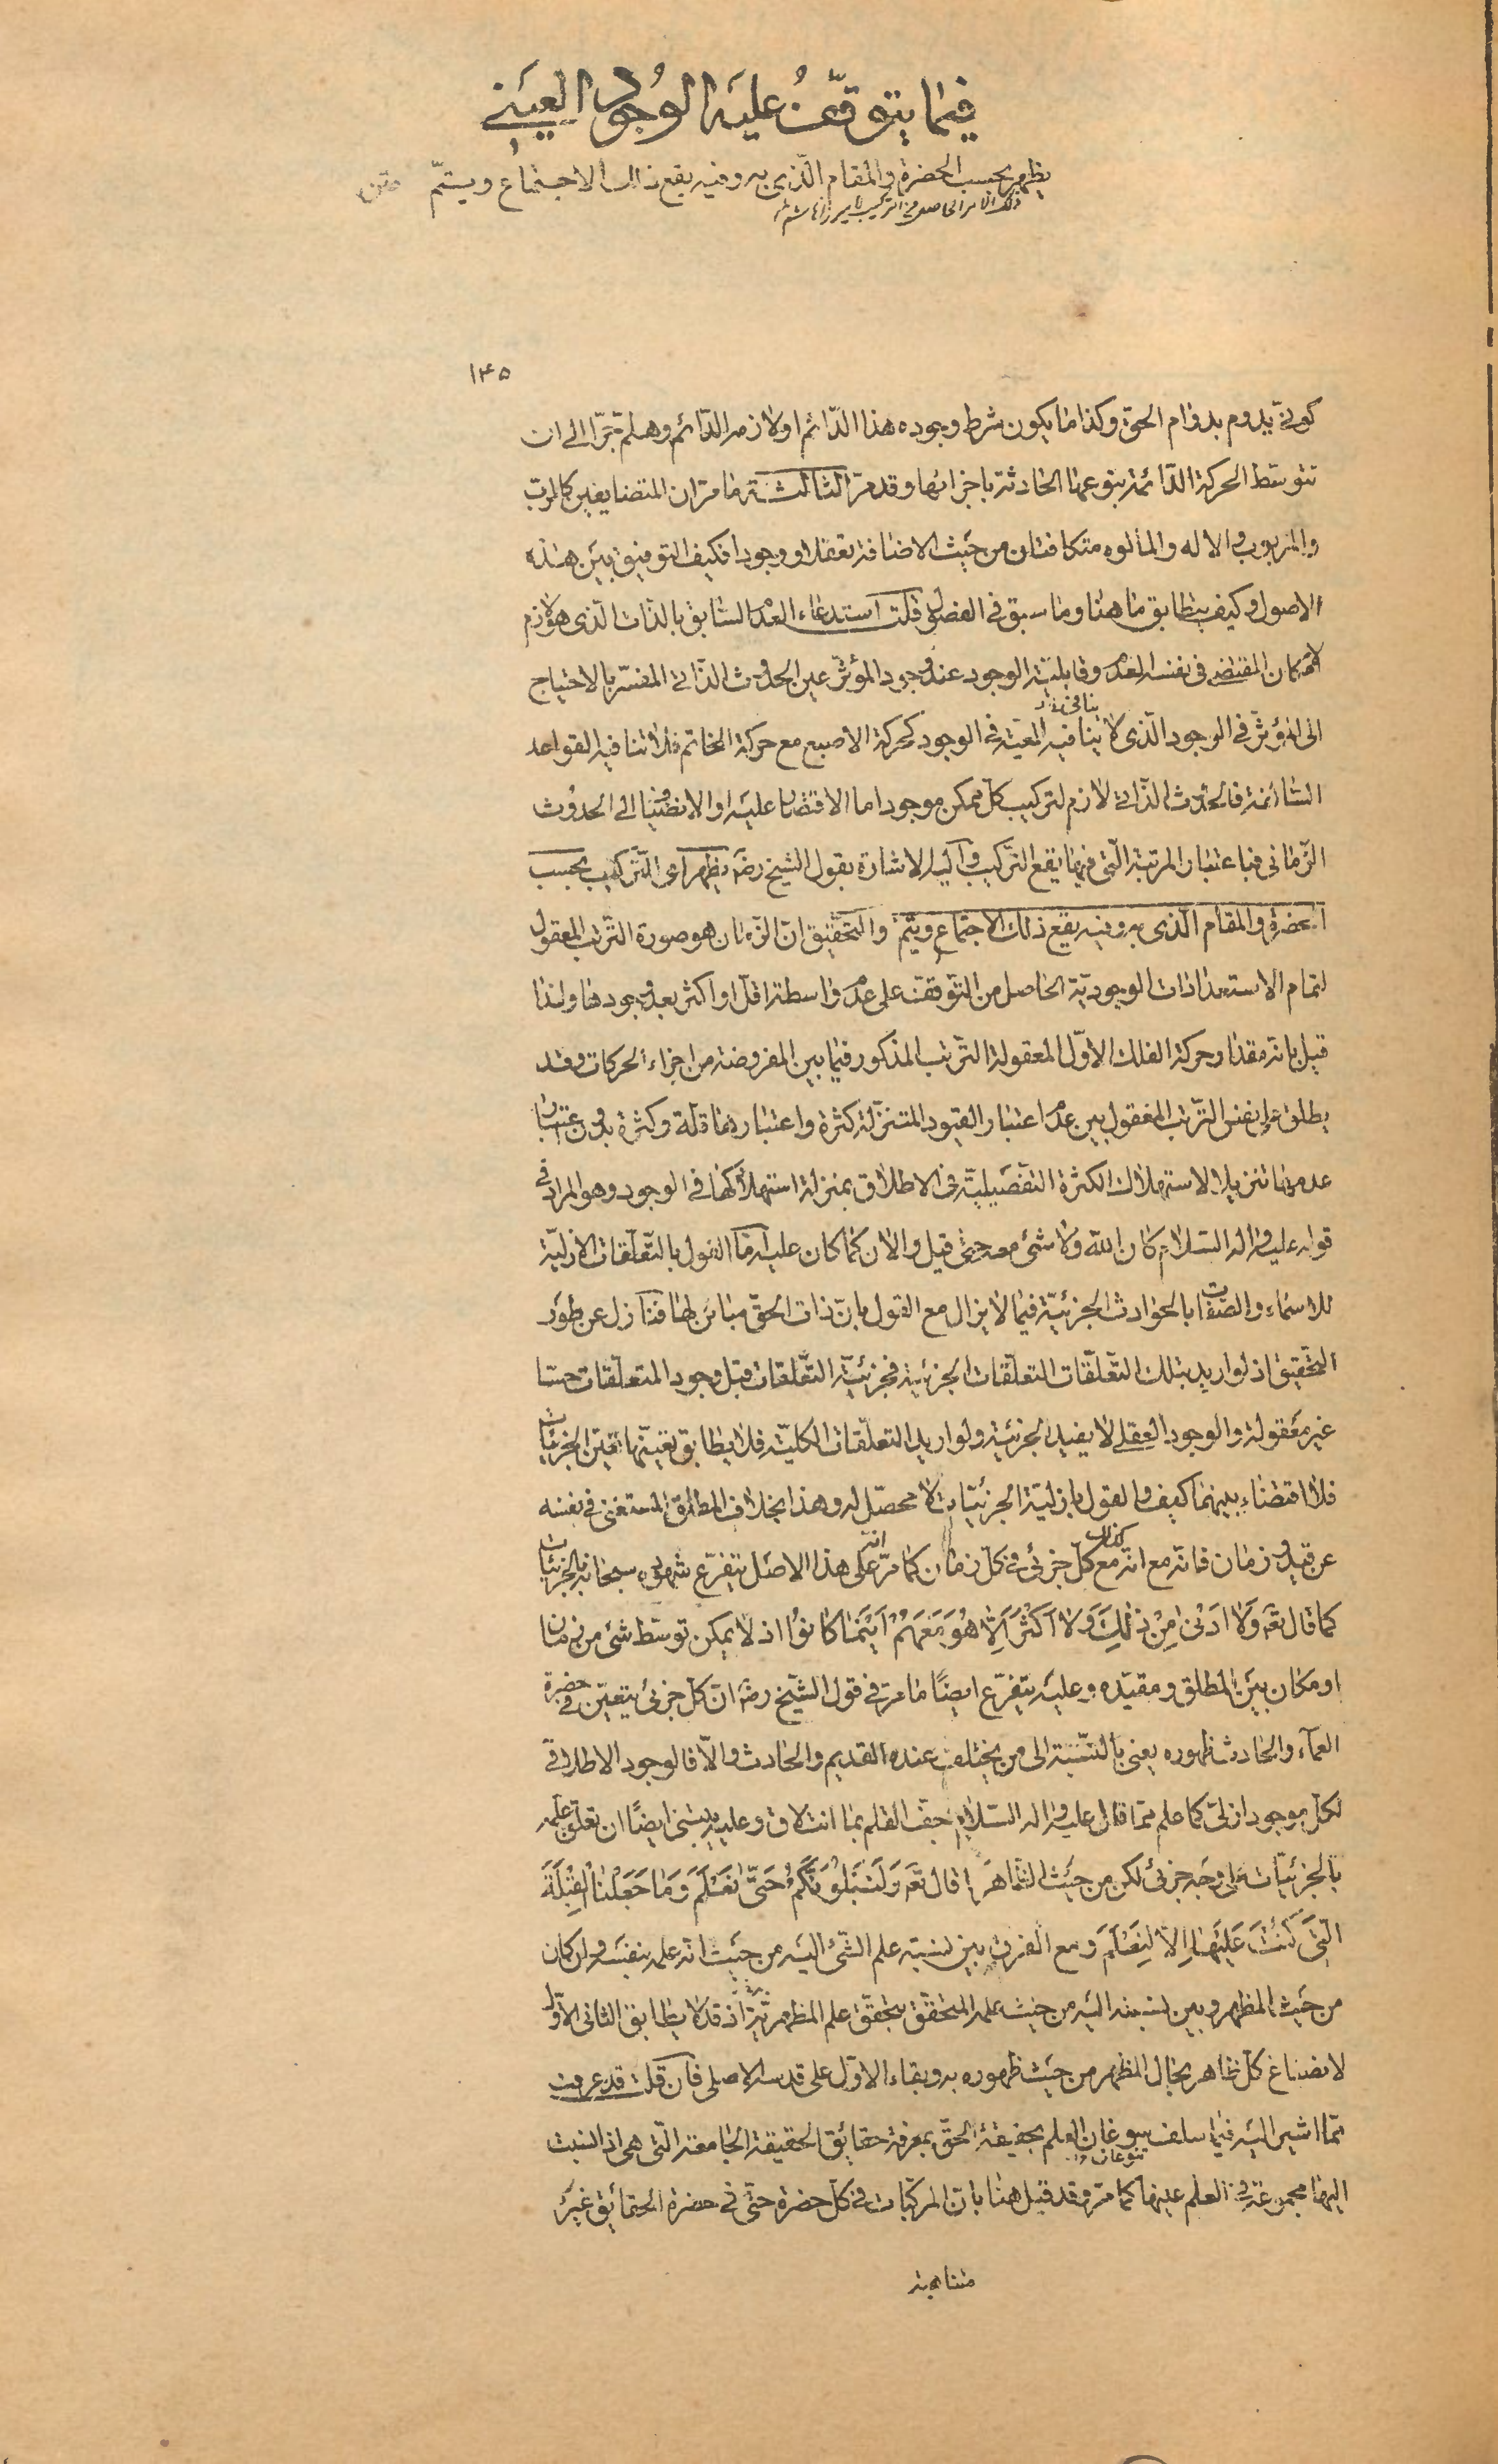 فيما يتوقّف عليه الوجود العينى
يظهر بحسب الحضرة والمقام الّذى به وفيه يقع ذلك الاجتماع ويستمّ متن
ذلك الامر الحاصل من التركيب
١٤٥
كونىّ يدوم بدوام الحقّ وكذا ما يكون شرط وجوده هذا الدّائم او لازمه الدّائم وهلمّ جرّا الى ان
تتوسّط الحركة الدّائمة بنوعها الحادثة باجزائها وقد مرّ الثالثة ما مرّ ان المتضايفين كالربّ
والمربوب والاله والمألوه متكافئان من حيث الاضافة تعقلا ووجودا فكيف التوفيق بين هذه
الاصول وكيف يتطابق ما هنا وما سبق فى الفصول قلت استدعاء العدم السّابق بالذات الّذى هو لازم
الامكان المقتضى فى نفسه العدم وقابليّة الوجود عند وجود المؤثّر عين الحدوث الذّاتى المفسّر بالاحتياج
الى المؤثّر فى الوجود الّذى لا ينافيه المعيّة فى الوجود كحركة الاصبع مع حركة الخاتم فلا تنافيه القواعد
السّالفة فالحدوث الذّاتى لازم لتركيب كلّ ممكن موجود اما الاقتصار عليه او الانضياف الى الحدوث
الزّمانى فباعتبار المرتبة الّتى فيها يقع التّركيب واليه الاشارة بقول الشيخ رضه يظهر اى التّركيب بحسب
الحضرة والمقام الّذى به وفيه يقع ذلك الاجتماع ويتمّ والتّحقيق انّ الزّمان هو صورة التّرتّب المعقول
لتمام الاستعدادات الوجوديّة الحاصل من التّوقّف على عدم واسطة اقلّ او اكثر بعد وجودها ولذا
قيل بانه مقدار حركة الفلك الاوّل المعقولة التّرتّب المذكور فيما بين المفروضة من اجزاء الحركات وقد
يطلق على نفس التّرتّب المعقول بين عدم اعتبار القيود المتنزّلة كثرة واعتبارها قلّة وكثرة بدون اعتبار
عدمها تنزيلا لاستهلاك الكثرة التّفصيليّة فى الاطلاق بمنزلة استهلاكها فى الوجود وهو المراد فى
قوله عليه واله السّلام كان الله ولا شئ معه حتّى قيل والآن كما كان عليه امّا القول بالتّعلّقات الازليّة
للاسماء والصّفات بالحوادث الجزئيّة فيما لا يزال مع القول بانّ ذات الحقّ مباين لها فنازل عن طور
التّحقيق اذ لو اريد بتلك التّعلّقات التعلّقات الجزئية فجزئيّة التّعلّقات قبل وجود المتعلّقات حسّا
غير معقولة والوجود العقلى لا يفيد الجزئية ولو اريد التعلّقات الكليّة فلا يطابق تعيّنها تعيّن الجزئيّات
فلا اقتضاء بينهما كيف والقول بازليّة الجزئيّات لا محصّل له وهذا بخلاف المطلق المستغنى فى نفسه
عن قيد زمان فانه مع انه مع كلّ جزئى فى كلّ زمان كما مرّ على هذا الاصل يتفرّع شهوده سبحانه بالجزئيّات
كما قال تعه وَلَا اَدْنىٰ مِنْ ذٰلِكَ وَلَا اَكْثَرَ اِلّا هُوَ مَعَهُمْ اَيْنَمَا كَانُوْا اذ لا يمكن توسّط شئ من زمان
او مكان بين المطلق ومقيّده وعليه يتفرّع ايضًا ما مرّ فى قول الشّيخ رضه انّ كلّ جزئى يتعيّن فى حضرة
العماء والحادث ظهوره يعنى بالنّسبة الى من يختلف عنده القديم والحادث والّا فالوجود الاطلاقى
لكلّ موجود ازلىّ كما علم ممّا قال عليه واله السّلام جفّ القلم بما انت لاق وعليه يبتنى ايضًا ان تعلّق علمه
بالجزئيّات على وجه جزئى لكن من حيث المظاهر قال تعه وَلَنَبْلُوَنَّكُمْ حَتّىٰ نَعْلَمَ وَمَا جَعَلْنَا الْقِبْلَةَ
الَّتِى كُنْتَ عَلَيْهَا اِلّا لِنَعْلَمَ ومع الفرق بين نسبة علم الشّئ اليه من حيث انّه علمه بنفسه وان كان
من حيث المظهر وبين نسبته اليه من حيث علمه المتحقّق بتحقّق علم المظهر به اذ قد لا يطابق الثانى الاوّل
لانصباغ كلّ ظاهر بحال المظهر من حيث ظهوره به وبقاء الاوّل على قدسه الاصلى فان قلت قد عرفت
ممّا اشير اليه فيما سلف العلم بحقيقة الحقّ بمعرفة حقائق الحقيقة الجامعة الّتى هى اذ انسبت
اليها مجموعة فى العلم عينها كما مرّ وقد قيل هنا بانّ المركّبات فى كلّ حضرة حتّى فى حضرة الحقائق غير
متناهية